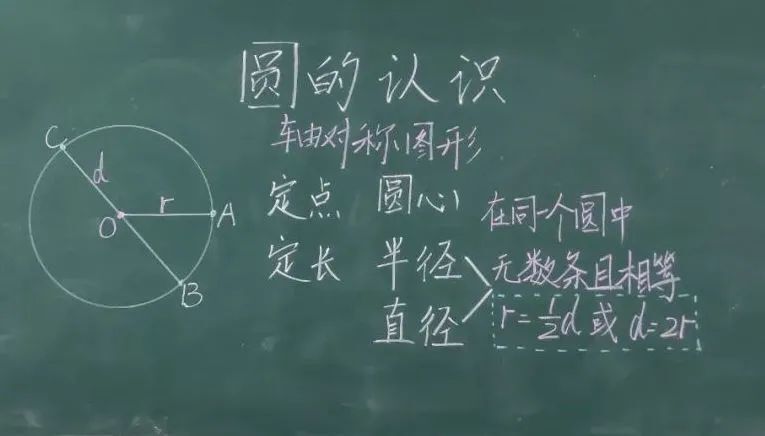 圆的认识
轴对称图形
C
d
r
O
A
B
定点 圆心
定长 半径
直径
在同一个圆中
无数条且相等
r=1/2d 或 d=2r